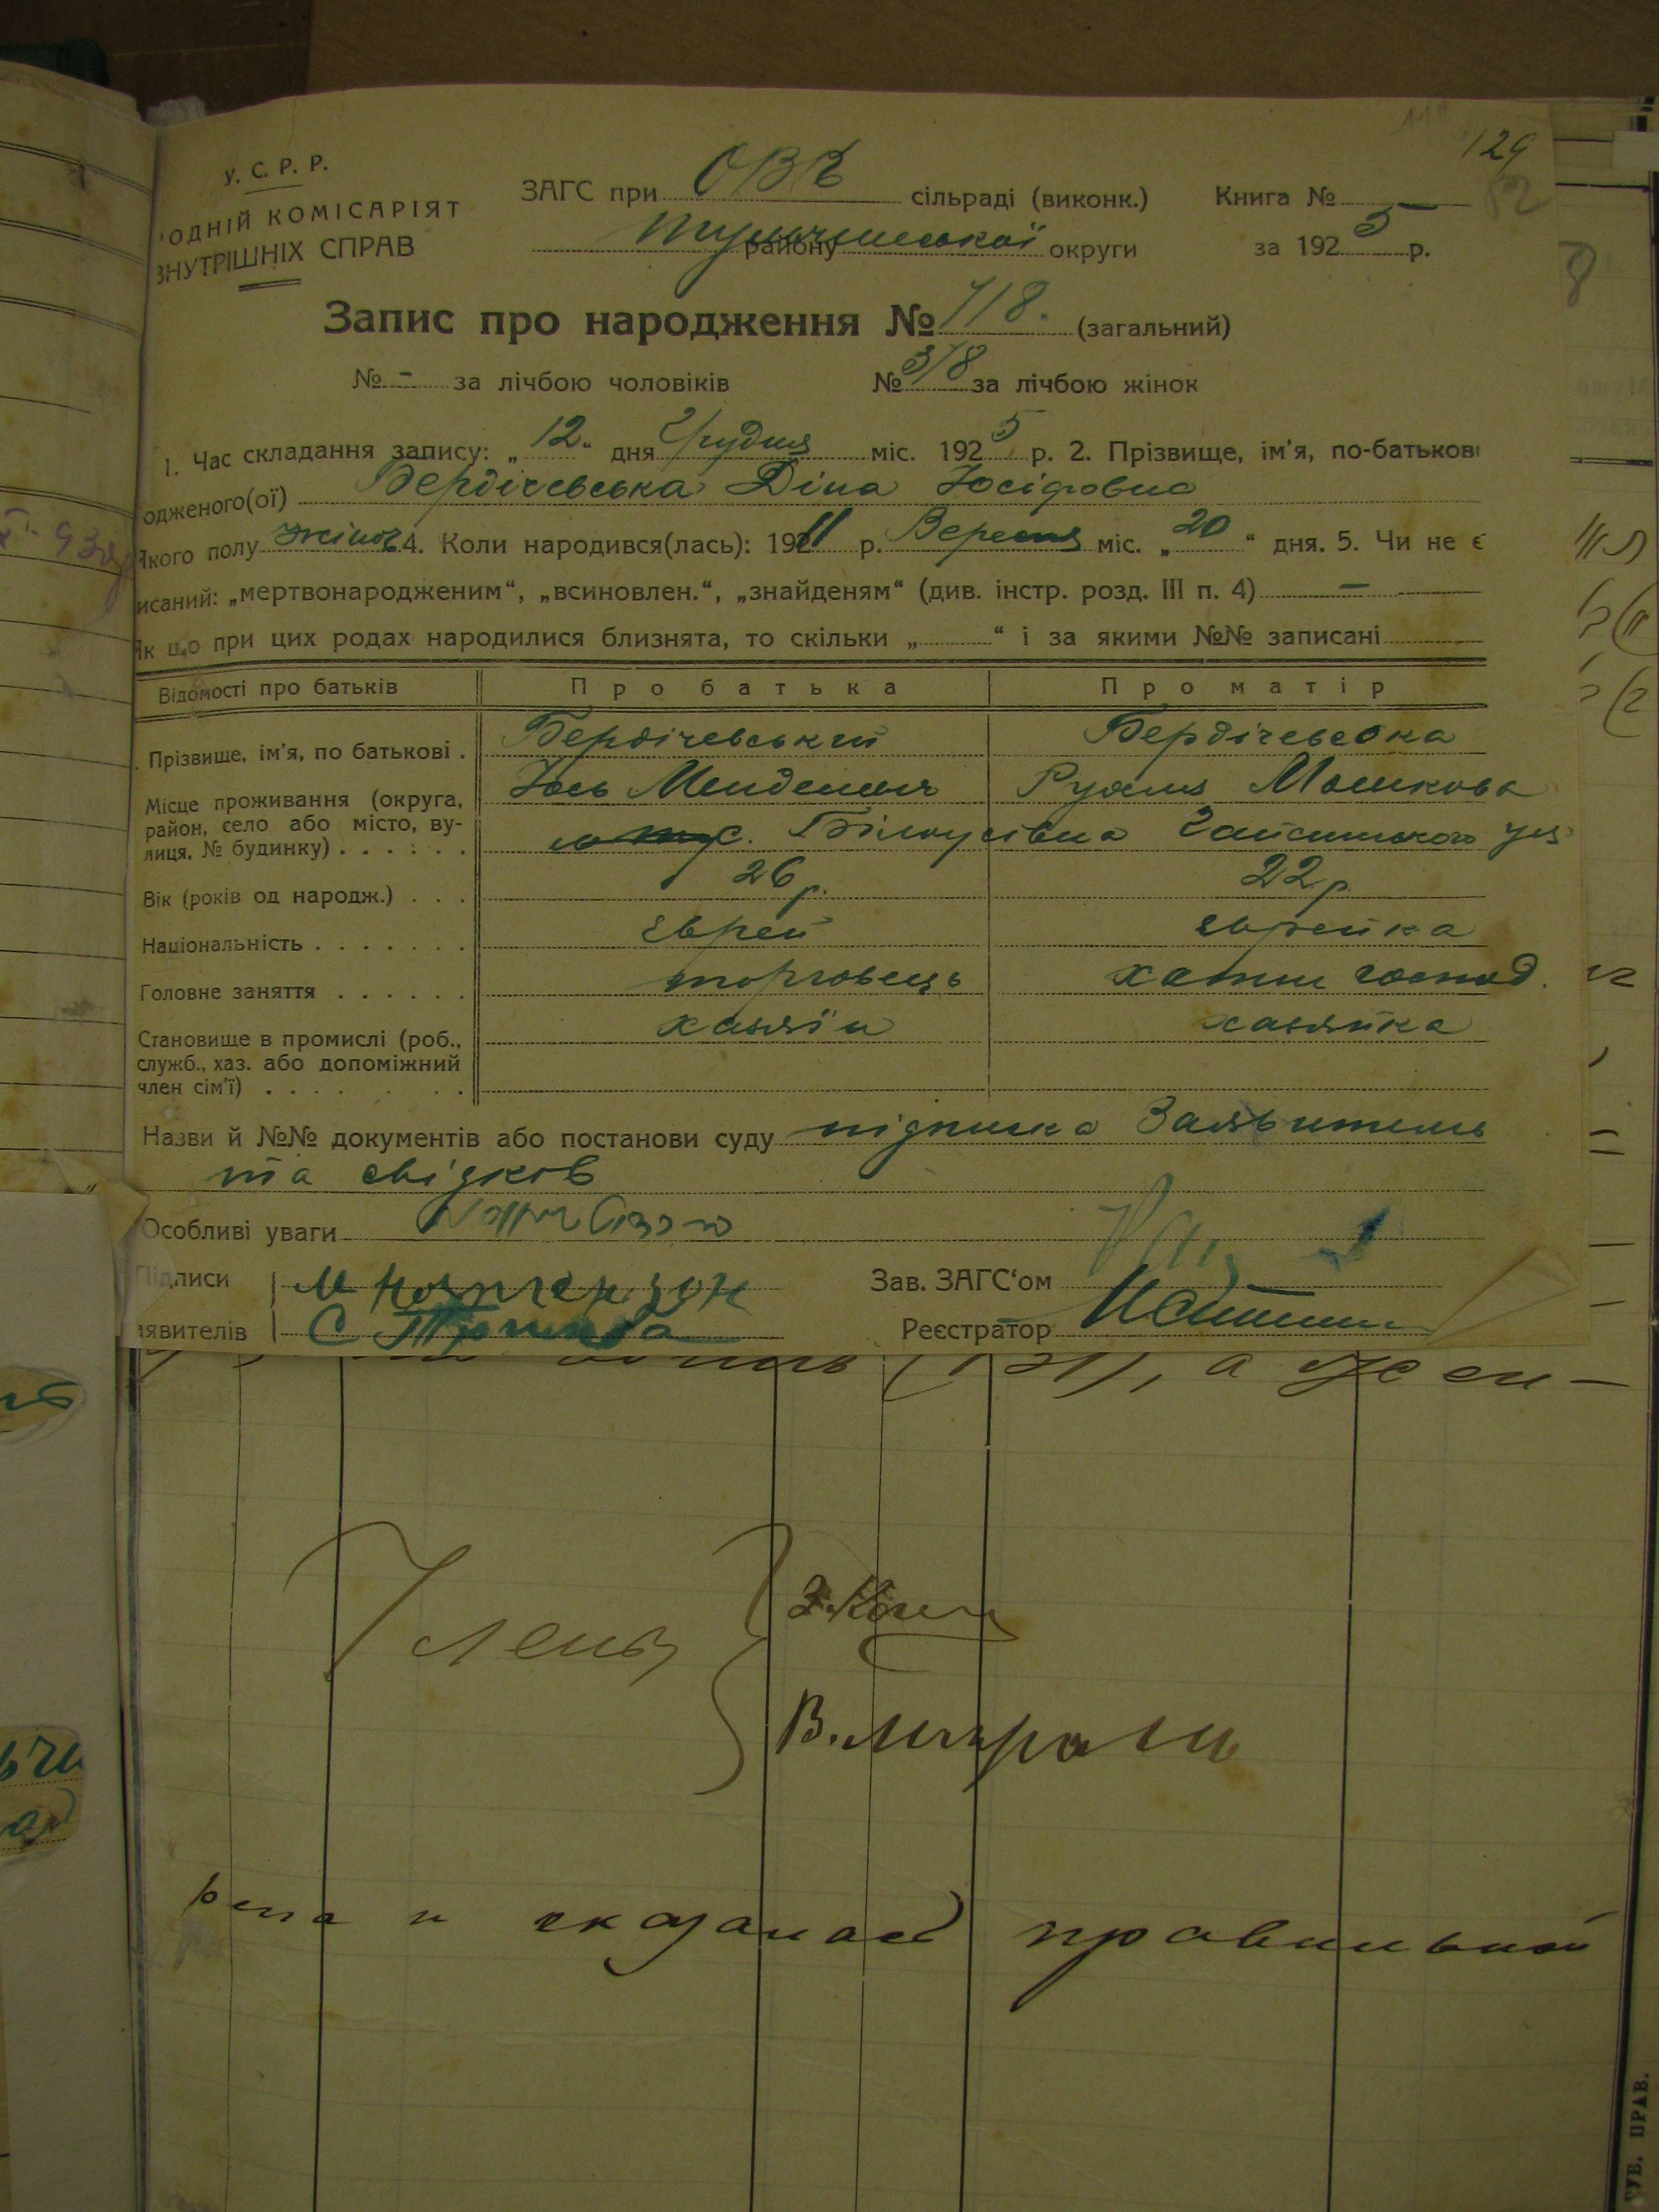 129
У. С. Р. Р.
ОДНІЙ КОМІСАРІЯТ
ВНУТРІШНІХ СПРАВ
ЗАГС при ОВК сільраді (виконк.) Книга №
району Тульчинської округи за 1925 р.
Запис про народження № 718. (загальний)
№ - за лічбою чоловіків № 378 за лічбою жінок
1. Час складання запису: „12“ дня Грудня міс. 1925 р. 2. Прізвище, ім'я, по-батькові
одженого(ої) Бердічевська Діна Іосіфовна
Якого полу жіноч. 4. Коли народився(лась): 1911 р. Вересня міс. „20“ дня. 5. Чи не є
исаний: „мертвонародженим“, „всиновлен.“, „знайденям“ (див. інстр. розд. III п. 4) —
Як що при цих родах народилися близнята, то скільки „ “ і за якими №№ записані
Відомості про батьків Про батька Про матір
Прізвище, ім'я, по батькові . Бердічевський Бердічевська
Йось Менделевич Рухля Мошкова
Місце проживання (округа,
район, село або місто, ву-
лиця, № будинку) . . . . . . с. Білоусівка Гайсинського
Вік (років од народж.) . . . 26 р. 22 р.
Національність . . . . . . . Єврей Єврейка
Головне заняття . . . . . . торговець хатнє господ.
Становище в промислі (роб., хазяїн хазяйка
служб., хаз. або допоміжний
член сім'ї) . . . .
Назви й №№ документів або постанови суду підписка Заявителя
та свідків
Особливі уваги
Підписи
аявителів
Зав. ЗАГС'ом
Реєстратор
Члены
З. Коган
В.
и сказанае правильной
УБ. ПРАВ.